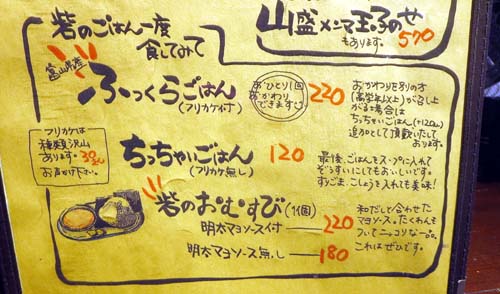 山盛メンマ玉子のせ
もあります。 570
砦のごはん一度
食してみて
富山県産
ふっくらごはん
(フリカケ付)
おひとり1回
おかわり
できます
220
おかわりを別の方
(高学年以上)が召し上
がる場合は
ちっちゃいごはん(+120円)
追加として頂戴いたして
おります。
フリカケは
種類沢山
あります。30円
お声かけ下さい。
ちっちゃいごはん
(フリカケ無し)
120
最後、ごはんをスープに入れて
ぞうすいにしてもおいしいです。
すりごま、こしょうを入れても美味!
砦のおむすび(1個)
明太マヨソース付 220
明太マヨソース無し 180
和だしと合わせた
マヨソース。たくわんも
ついてニッコリな一品。
これはぜひです。